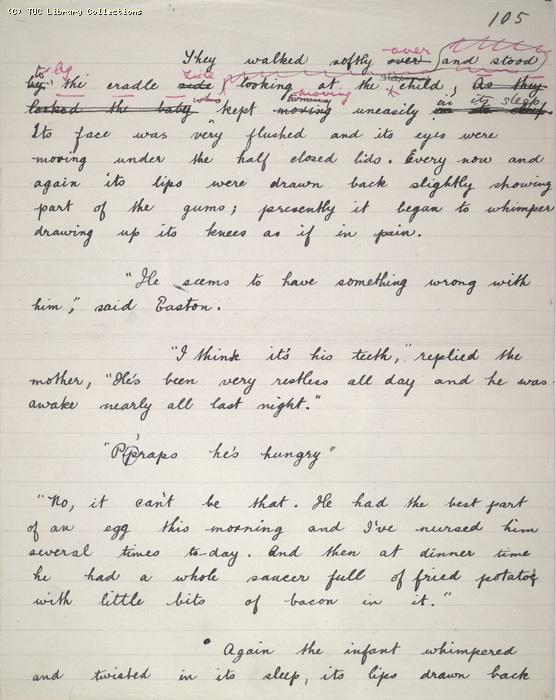 (C) TUC Library Collections
105
They walked softly over over and stood
to by by the cradle side side looking at the child; As they
looked the baby who kept moving moving uneasily in its sleep.
Its face was very flushed and its eyes were
moving under the half closed lids. Every now and
again its lips were drawn back slightly showing
part of the gums; presently it began to whimper
drawing up its knees as if in pain.
"He seems to have something wrong with
him," said Easton.
"I think it's his teeth," replied the
mother, "He's been very restless all day and he was
awake nearly all last night."
"P'raps he's hungry"
"No, it can't be that. He had the best part
of an egg this morning and I've nursed him
several times to-day. And then at dinner time
he had a whole saucer full of fried potatoes
with little bits of bacon in it."
Again the infant whimpered
and twisted in its sleep, its lips drawn back